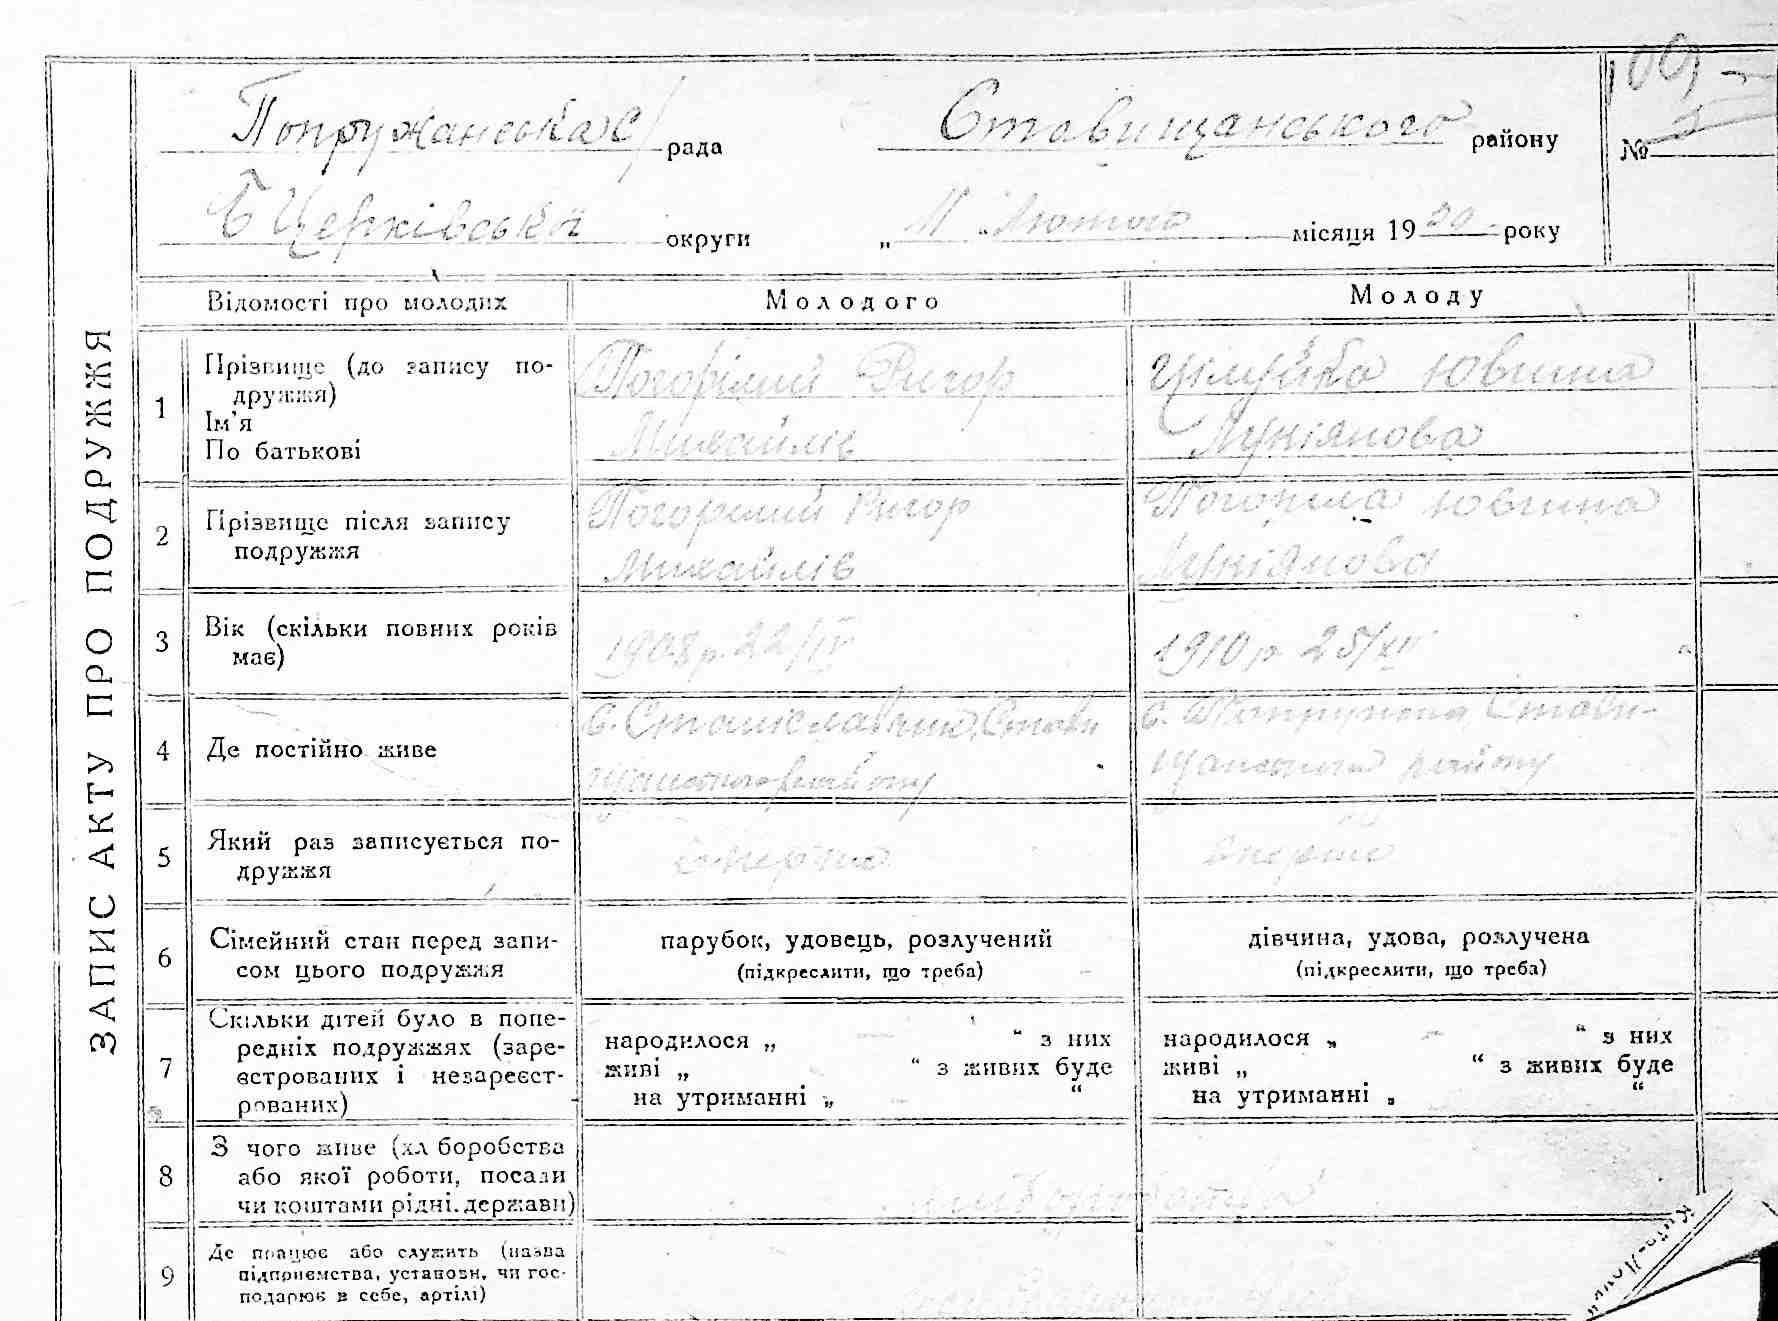 Попружанська с/ рада Ставищанського району
№ 5
Б Церківська округи „ 11 “ Лютого місяця 1929 року
Відомості про молодих Молодого Молоду
ЗАПИС АКТУ ПРО ПОДРУЖЖЯ
1 Прізвище (до запису по-
дружжя)
Ім’я
По батькові
Погорілий Ригор
Михайлів
Ювгина
2 Прізвище після запису
подружжя
Погорілий Ригор
Михайлів
Погоріла Ювгина
3 Вік (скільки повних років
має)
1908 р 22/IV
1910 р 25/XII
4 Де постійно живе
с. Станіславчик, Стави
щанського району
с. Стави-
щанського району
5 Який раз записується по-
дружжя
вперше
вперше
6 Сімейний стан перед запи-
сом цього подружжя
парубок, удовець, розлучений
(підкреслити, що треба)
дівчина, удова, розлучена
(підкреслити, що треба)
7 Скільки дітей було в попе-
редніх подружжях (заре-
єстрованих і незареєст-
рованих)
народилося „ “ з них
живі „ “ з живих буде
на утриманні „ “
народилося „ “ з них
живі „ “ з живих буде
на утриманні „ “
8 З чого живе (хл боробства
або якої роботи, посади
чи коштами рідні.держави)
9 Де працює або служить (назва
підприємства, установи, чи гос-
подарює в себе, артілі)